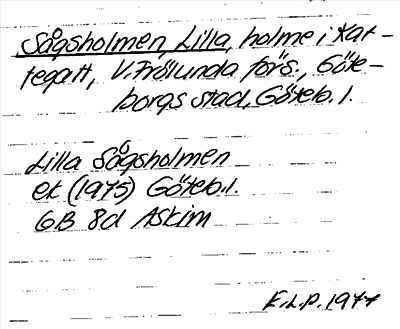 Sågsholmen, Lilla, holme i Kat-
tegatt, V. Frölunda förs., Göte-
borgs stad, Göteb. l.
Lilla Sågsholmen
ek (1975) Göteb. l.
6B 8d Askim
E.L.P. 1977